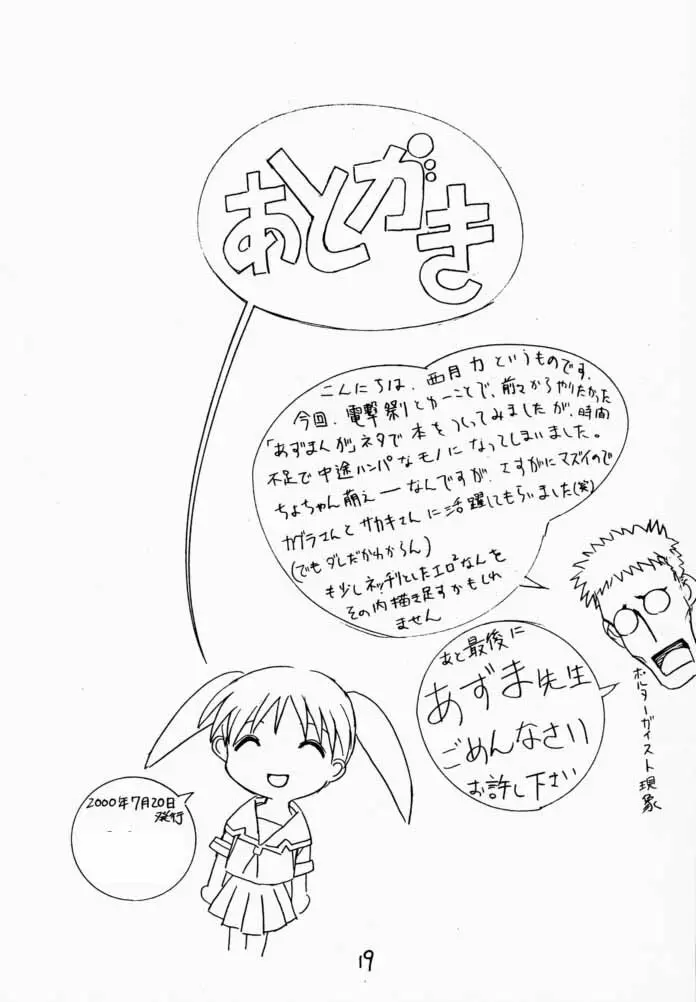 あとがき
こんにちは、西月力というものです。
今回、電撃祭りとゆーことで、前々からやりたかった
「あずまんが」ネタで本をつくってみましたが、時間
不足で中途ハンパなモノになってしまいました。
ちよちゃん萌え――なんですが、さすがにマズイので
カグラさんとサカキさんに活躍してもらいました(笑)
(でもダレだかわからん)
も少しネッチリとしたエロ²なんを
その内描き足すかもしれ
ません
あと最後に
あずま先生
ごめんなさい
お許し下さい
ポルターガイスト現象
2000年7月20日
発行
19